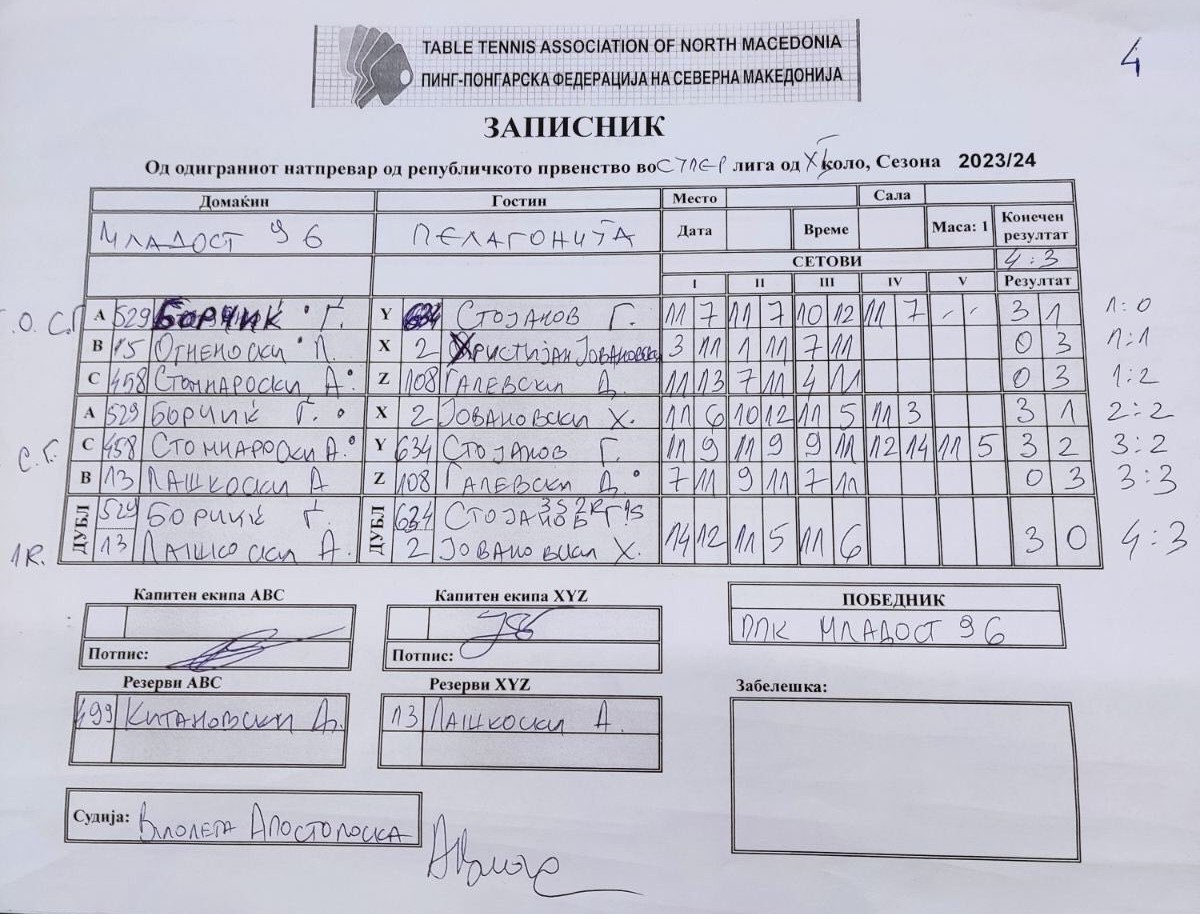 4
TABLE TENNIS ASSOCIATION OF NORTH MACEDONIA
ПИНГ-ПОНГАРСКА ФЕДЕРАЦИЈА НА СЕВЕРНА МАКЕДОНИЈА
ЗАПИСНИК
Од одиграниот натпревар од републичкото првенство во СУПЕР лига од XI коло, Сезона 2023/24
Домаќин Гостин Место Сала
МЛАДОСТ 96 ПЕЛАГОНИЈА Дата Време Маса: 1 Конечен резултат
СЕТОВИ 4:3
I II III IV V Резултат
A 529 БОРЧИЌ Ѓ. Y 634 СТОЈАНОВ Г. 11 7 11 7 10 12 11 7 - - 3 1 1:0
B 15 ОГНЕНОСКИ Л. X 2 ХРИСТИЈАН ЈОВАНОВСКИ 3 11 1 11 7 11 0 3 1:1
C 458 СТОЈНАРОСКИ А. Z 108 ГАЛЕВСКИ Д. 11 13 7 11 4 11 0 3 1:2
A 529 БОРЧИЌ Ѓ. X 2 ЈОВАНОВСКИ Х. 11 6 10 12 11 5 11 3 3 1 2:2
С.Г. C 458 СТОЈНАРОСКИ А. Y 634 СТОЈАНОВ Г. 11 9 11 9 9 11 12 14 11 5 3 2 3:2
B 13 ЛАШКОСКИ А Z 108 ГАЛЕВСКИ Д. 7 11 9 11 7 11 0 3 3:3
ДУБЛ 529 БОРЧИЌ Ѓ. ДУБЛ 634 СТОЈАНОВ Г.
1R. 13 ЛАШКОСКИ А. 2 ЈОВАНОВСКИ Х. 14 12 11 5 11 6 3 0 4:3
Капитен екипа ABC Капитен екипа XYZ ПОБЕДНИК
ППК МЛАДОСТ 96
Потпис: Потпис:
Резерви ABC Резерви XYZ Забелешка:
499 КИТАНОВСКИ Д. 13 ЛАШКОСКИ А.
Судија: ВИОЛЕТА АПОСТОЛОСКА